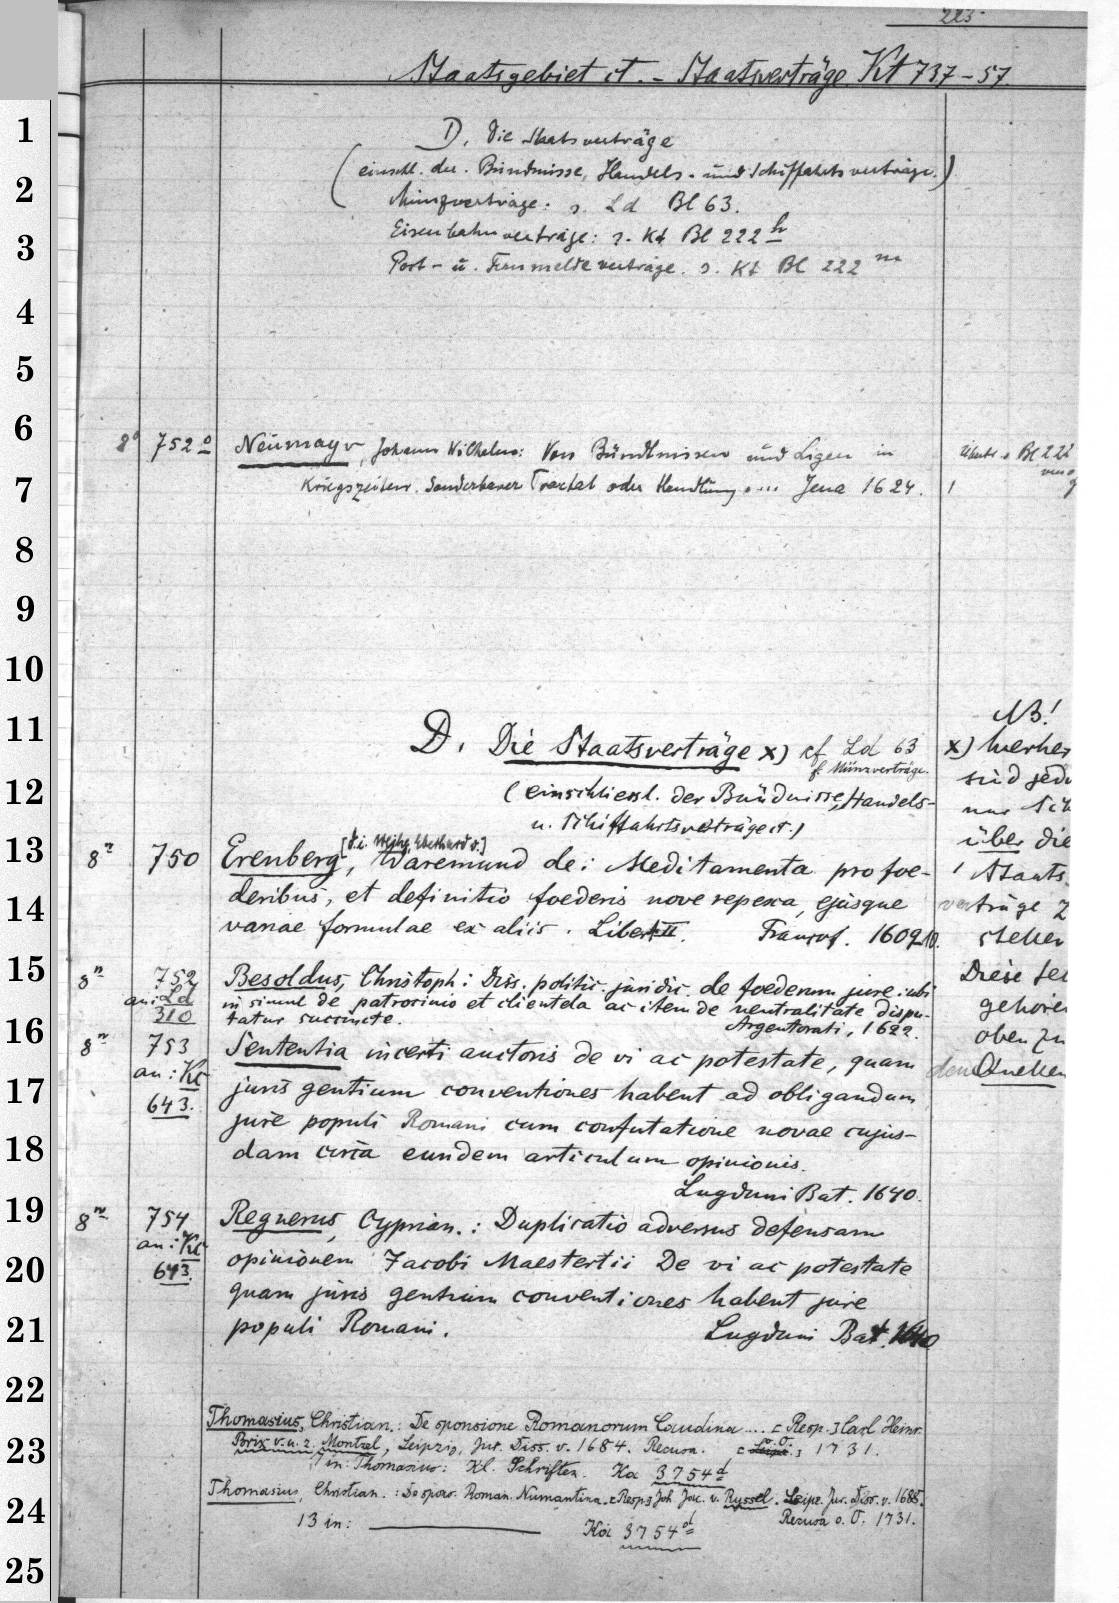 223
Staatsgebiet et. - Staatsverträge. Kt 737-57.
D. Die Staatsverträge
(einschl. der Bündnisse, Handels- und Schiffahrtsverträge.)
Münzverträge: s. Ld Bl 63.
Eisenbahnverträge: s. Kt Bl 222 h
Post- u. Fernmeldeverträge. s. Kt Bl 222 m
8° 752 o Neumayr, Johann Wilhelm: Von Bündtnissen und Ligen in
Kriegszeiten. Sonderbarer Tractat oder Handlung .... Jena 1624.
Bl 222
1
NB!
D. Die Staatsverträge x) cf Ld 63
f. Münzverträge.
(einschliessl. der Bündnisse, Handels-
u. Schiffahrtsverträge et.)
x) hierher
sind jedo
nur Sch
über die
Staats-
verträge z
stellen
Diese
gehören
oben zu
den Quellen
[d.i. Weihe, Eberhard v.]
8° 750 Erenberg, Waremund de: Meditamenta pro foe-
deribus, et definitio foederis nove repexa, ejusque
variae formulae ex aliis. Liber I II. Francof. 1609. 10.
8° 752 an: Ld 310 Besoldus, Christoph: Diss. politic. juridic. de foederum jure: ubi
in simul de patrocinio et clientela ac item de neutralitate dispu-
tatur succincte. Argentorati, 1622.
8° 753 an: Kc 643. Sententia incerti auctoris de vi ac potestate, quam
juris gentium conventiones habent ad obligandum
jure populi Romani cum confutatione novae cujus-
dam circa eundem articulum opinionis.
Lugduni Bat. 1640.
8° 754 an: Kc 643. Regnerus, Cyprian.: Duplicatio adversus defensam
opinionem Jacobi Maestertii De vi ac potestate
quam juris gentium conventiones habent jure
populi Romani. Lugduni Bat. 1640
Thomasius, Christian.: De sponsione Romanorum Caudina .... [Resp.] Carl Heinr.
Brix v. u. z. Montzel, Leipzig, Jur. Diss. v. 1684. Recusa. [o. O.] 1731.
in: Thomasius: Kl. Schriften. Ka 3754 d
Thomasius, Christian.: De spons. Roman. Numantina. [Resp] Joh. Jac. v. Ryssel. Leipz. Jur. Diss. v. 1688.
Recusa o. O. 1731.
13 in: Ka 3754 d
1
2
3
4
5
6
7
8
9
10
11
12
13
14
15
16
17
18
19
20
21
22
23
24
25